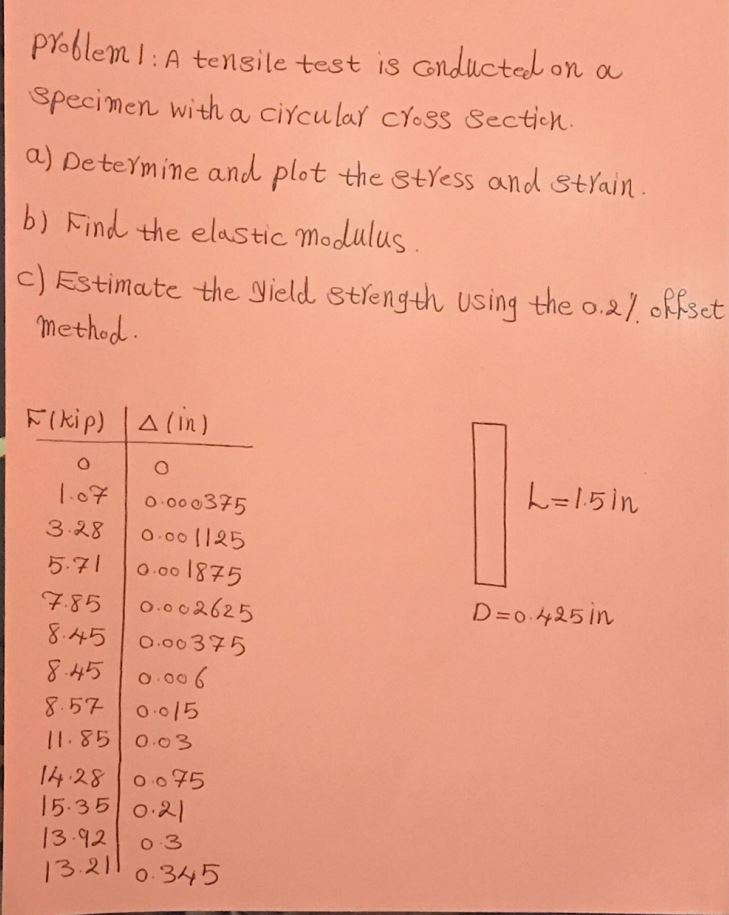 Problem 1: A tensile test is conducted on a
specimen with a circular cross section.
a) Determine and plot the stress and strain.
b) Find the elastic modulus.
c) Estimate the yield strength using the 0.2% offset
method.
F(kip) Δ(in)
0 0
1.07 0.000375
3.28 0.001125
5.71 0.001875
7.85 0.002625
8.45 0.00375
8.45 0.006
8.57 0.015
11.85 0.03
14.28 0.075
15.35 0.21
13.92 0.3
13.21 0.345
L=1.5in
D=0.425in